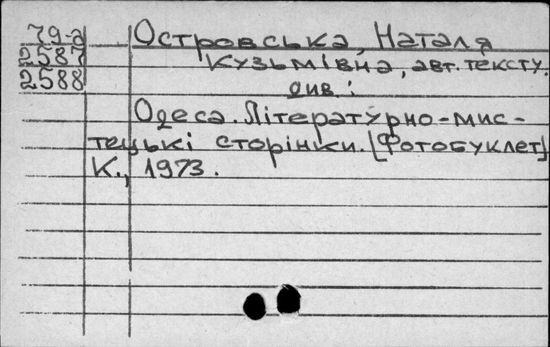 79-а Островська, Наталя
2587 Кузьмівна, авт. тексту.
2588 див:
Одеса. Літературно-мис-
тецькі сторінки. [Фотобуклет]
К., 1973.